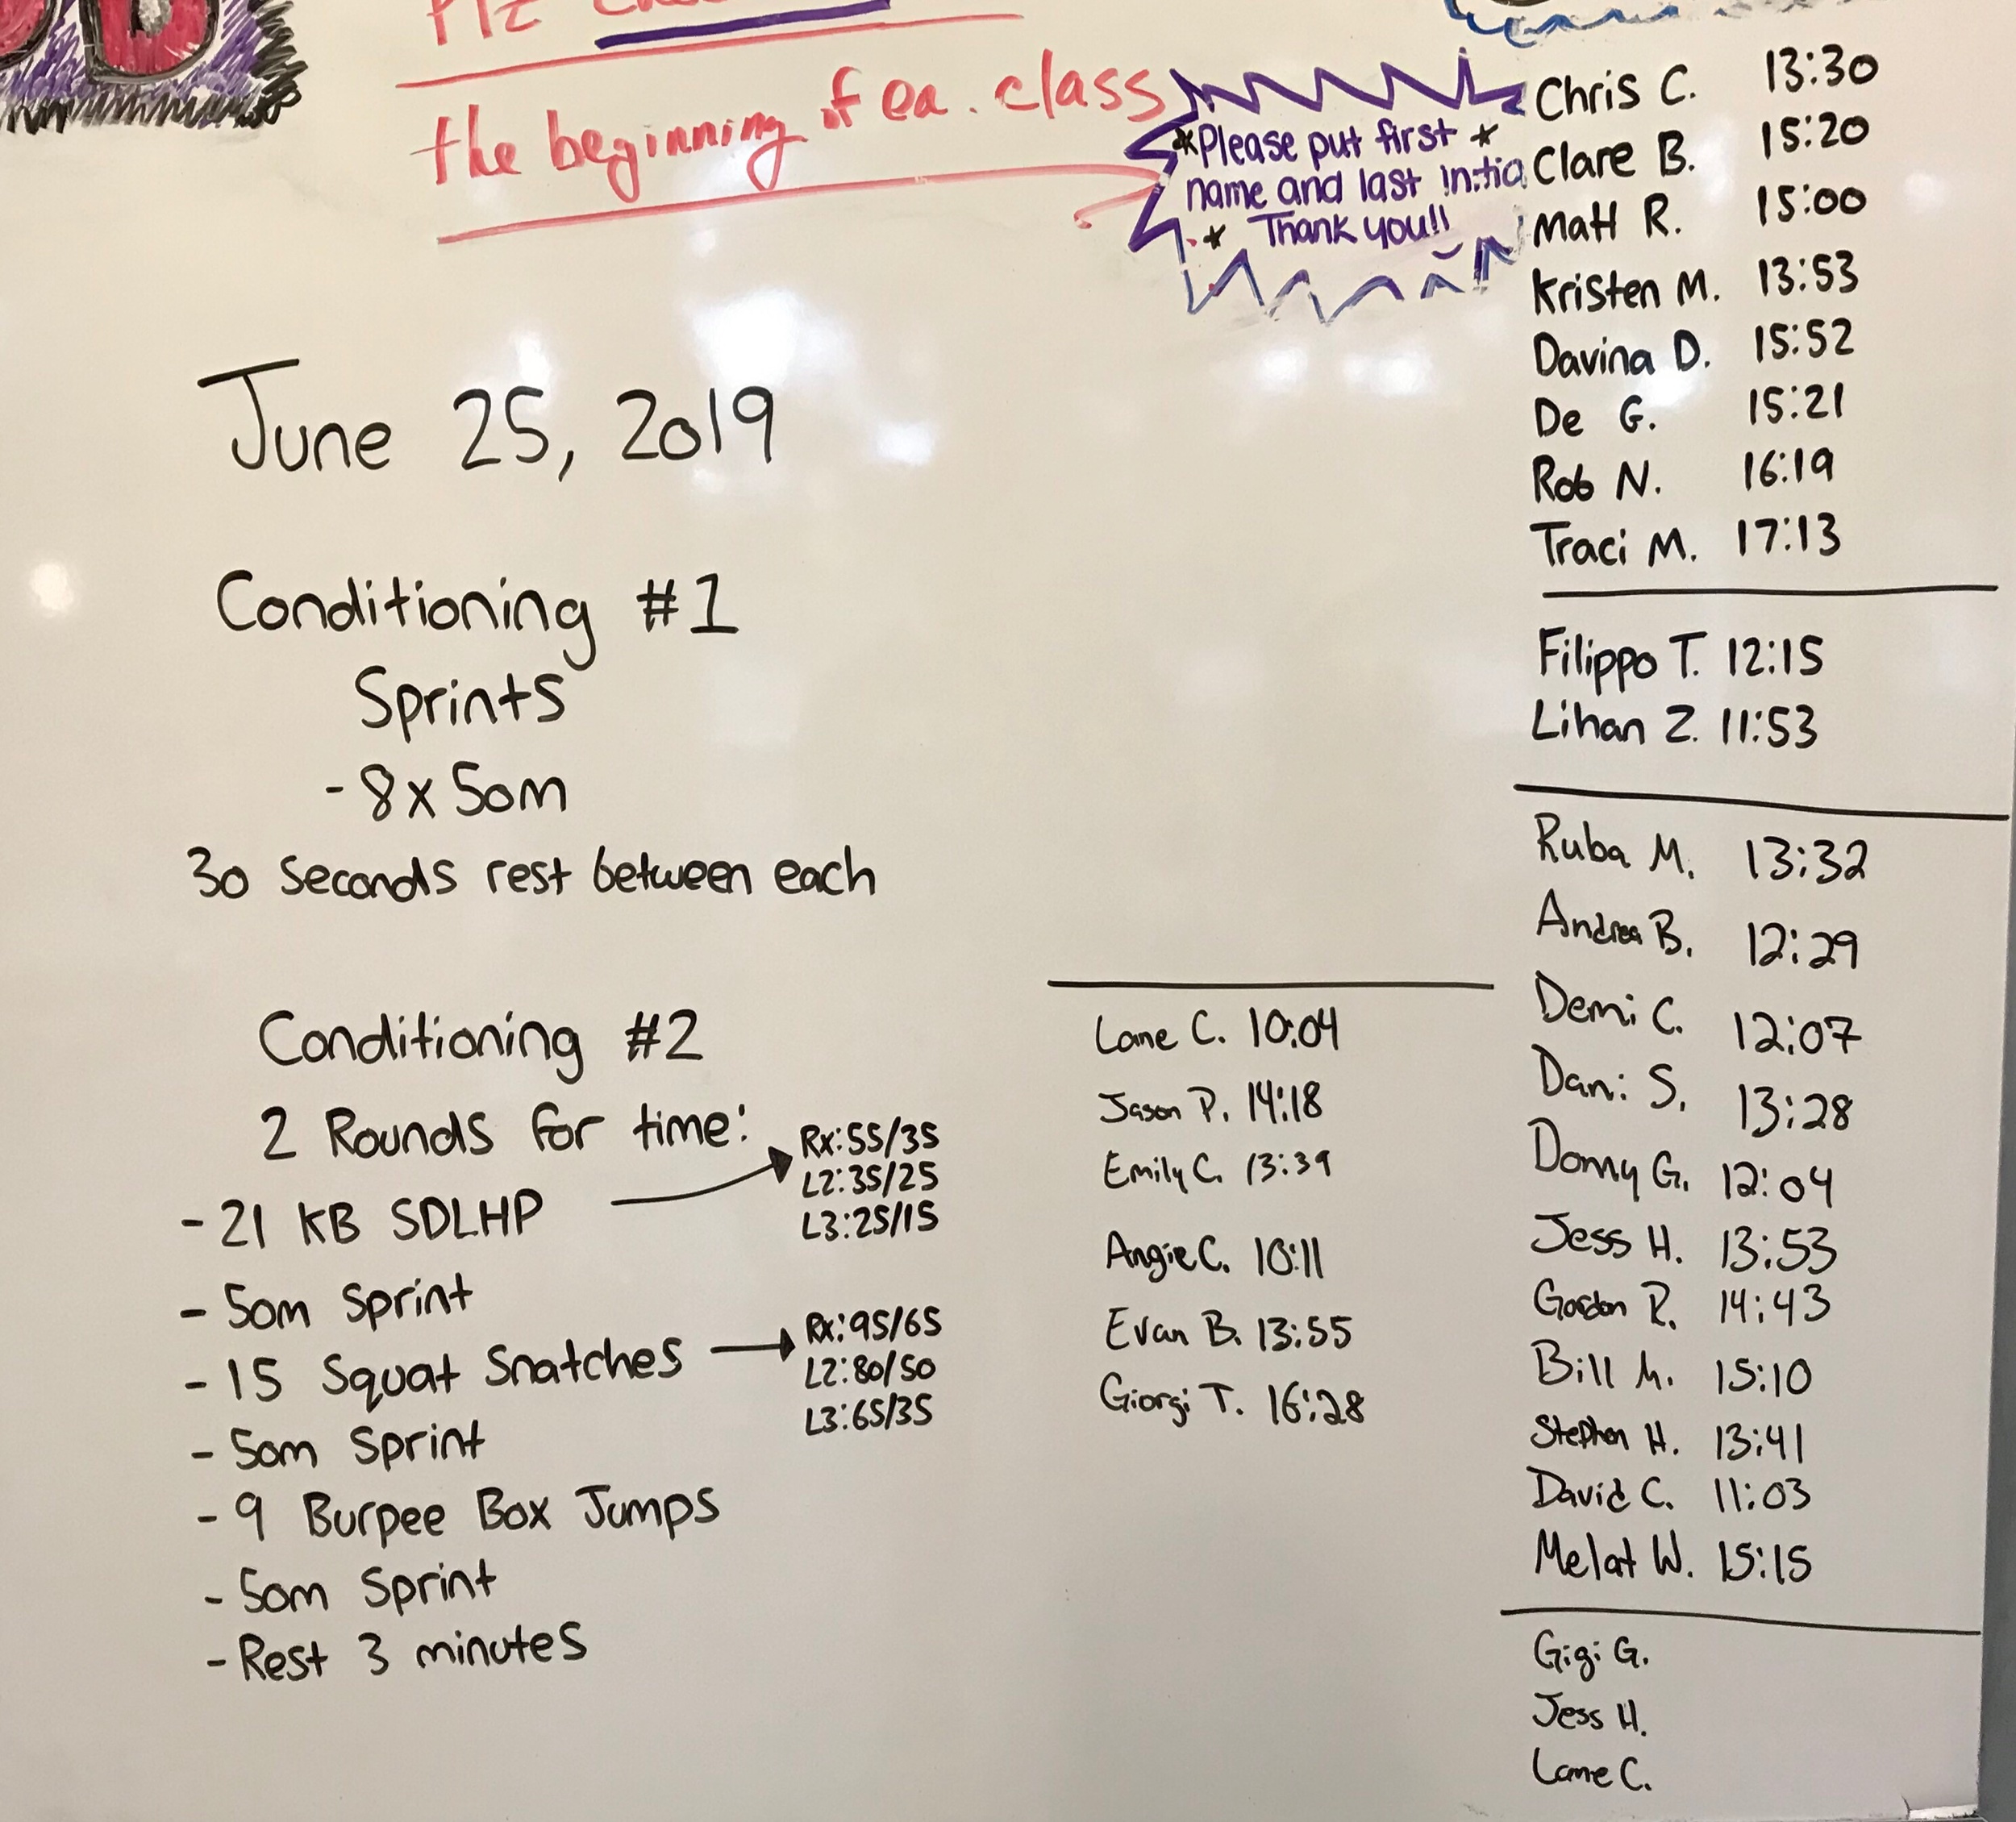 the beginning of ea. class
*Please put first *
name and last initia
* Thank you!!
June 25, 2019
Conditioning #1
Sprints
- 8x50m
30 seconds rest between each
Conditioning #2
2 Rounds for time:
- 21 KB SDLHP
Rx:55/35
L2:35/25
L3:25/15
- 50m Sprint
- 15 Squat Snatches
Rx:95/65
L2:80/50
L3:65/35
- 50m Sprint
- 9 Burpee Box Jumps
- 50m Sprint
- Rest 3 minutes
Lane C. 10:04
Jason P. 14:18
Emily C. 13:39
Angie C. 10:11
Evan B. 13:55
Giorgi T. 16:28
Chris C. 13:30
Clare B. 15:20
Matt R. 15:00
Kristen M. 13:53
Davina D. 15:52
De G. 15:21
Rob N. 16:19
Traci M. 17:13
Filippo T. 12:15
Lihan Z. 11:53
Ruba M. 13:32
Andrea B. 12:29
Demi C. 12:07
Dani S. 13:28
Donny G. 12:04
Jess H. 13:53
Gordon R. 14:43
Bill M. 15:10
Stephen H. 13:41
David C. 11:03
Melat W. 15:15
Gigi G.
Jess H.
Lane C.